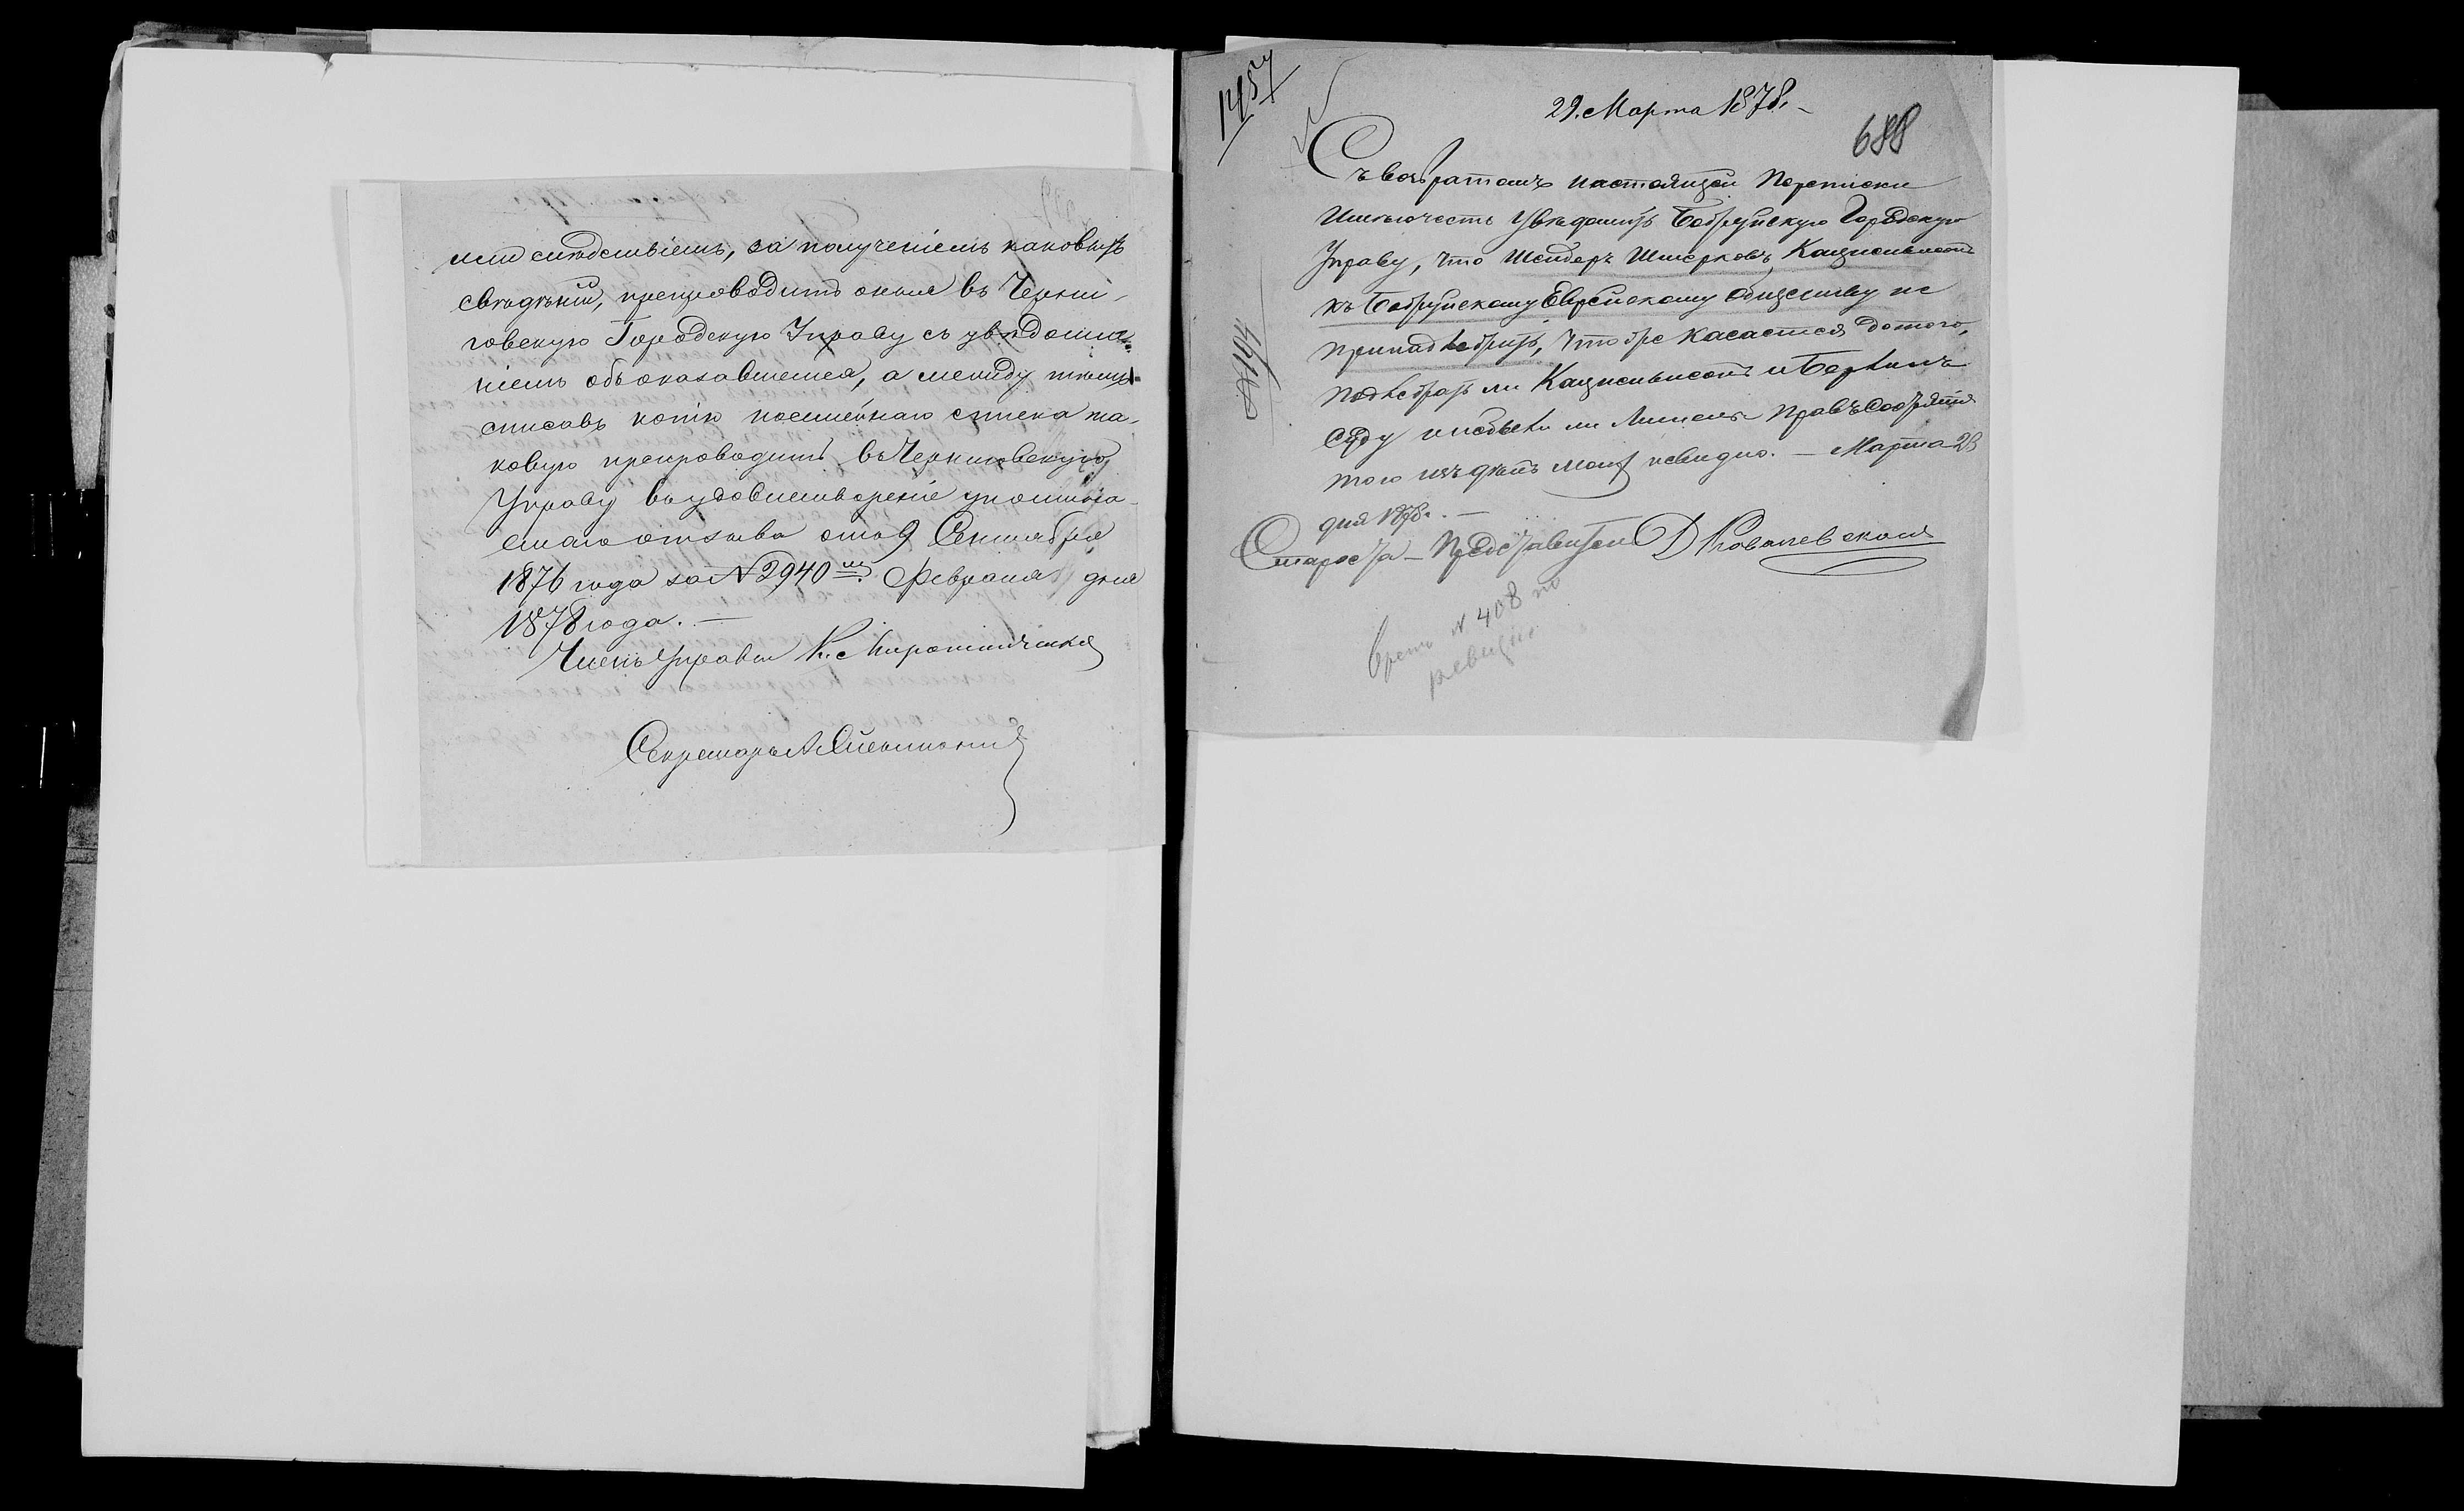 или следствiемъ, за полученiемъ каковыхъ
свѣдѣнiй, препроводить оныя въ Черни-
говскую Городскую Управу съ увѣдомле-
нiемъ объ оказавшемся, а между тѣмъ
списавъ копiю посемейнаго списка та-
ковую препроводить въ Черниговскую
Управу въ удовлетворенiе упомина-
емаго отзыва отъ 9 Сентября
1876 года за № 2940мъ. Февраля дня
1878 года. —
Членъ Управы К. Мирошниченко
Секретарь
1457
29. Марта 1878. –
688
Съ возвратомъ настоящей переписки
имѣю честь увѣдомить Бобруйскую Городскую
Управу, что Шендеръ Шмерковъ Кацнельсонъ
къ Бобруйскому Еврейскому обществу не
принадлежитъ, что же касается до того,
подлежатъ ли Кацнельсонъ и Берлинъ
суду и небыли ли лишены правъ состоянiя
того изъ дѣлъ моихъ невидно. — Марта 28
дня 1878. —
Староста - Представитель Д
№ 408 по
ревизiи